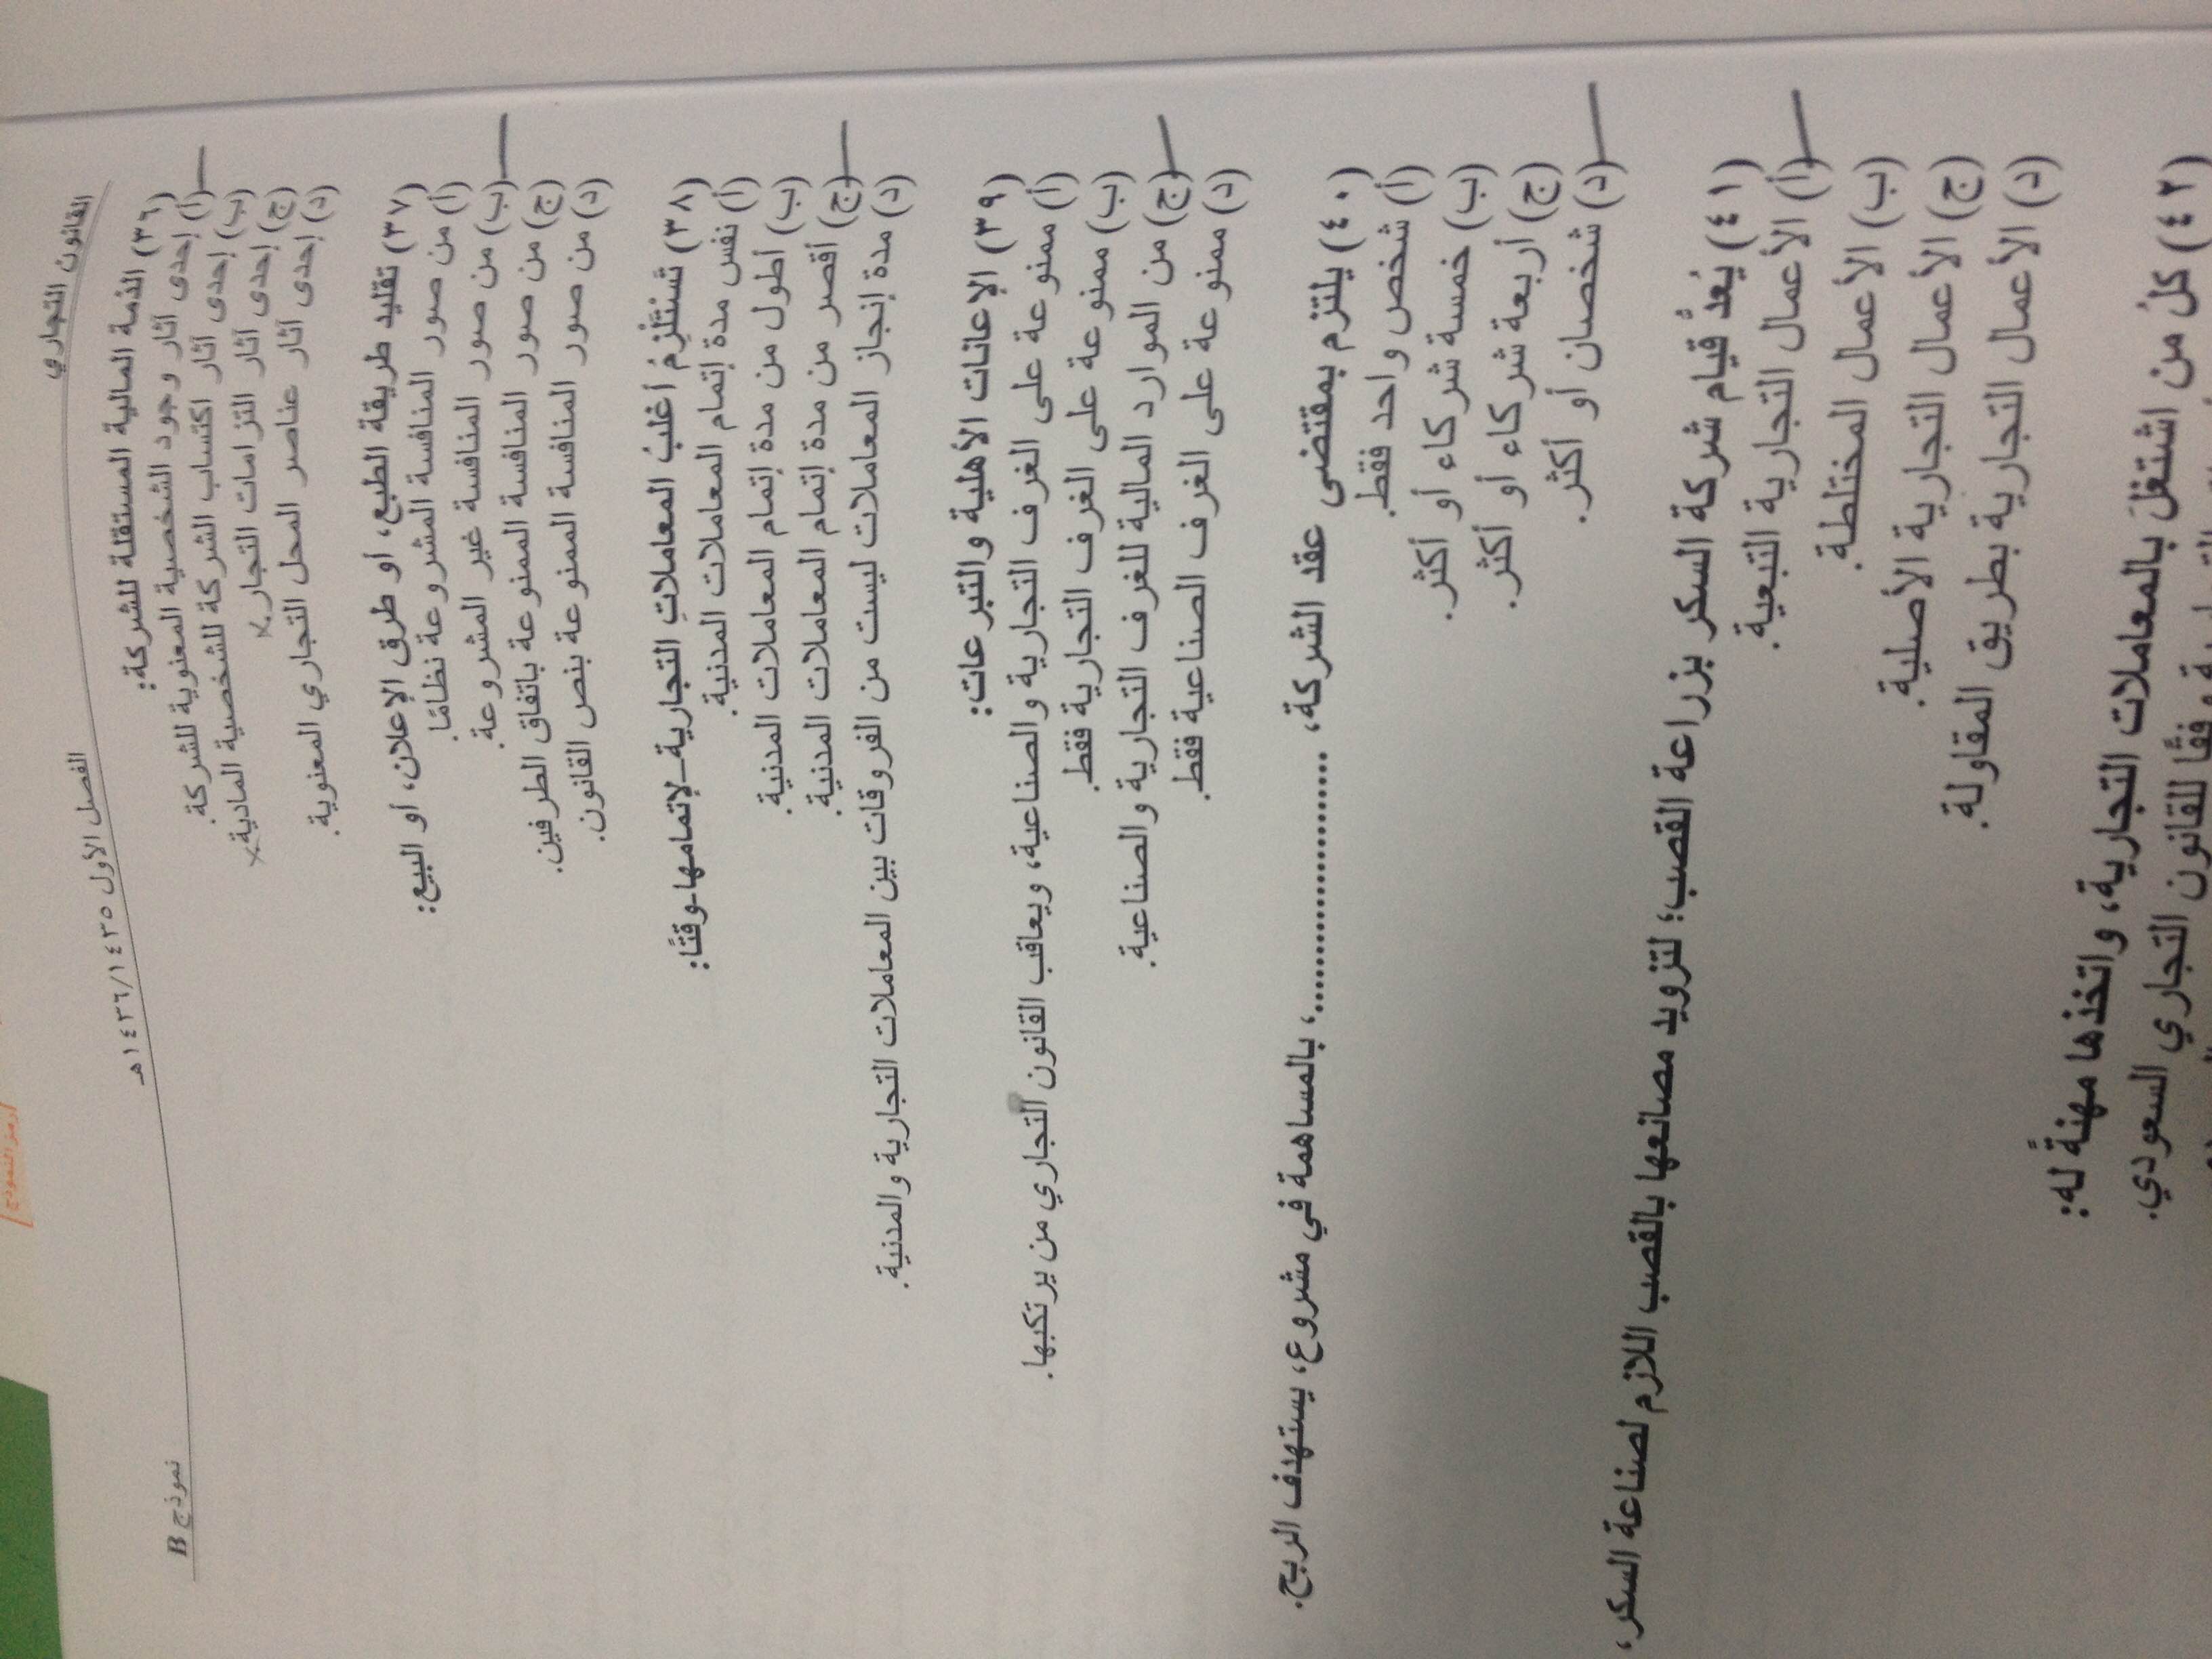 [رمز النموذج
القانون التجاري
الفصل الأول ١٤٣٥/١٤٣٦هـ
نموذج B
(٣٦) الذمة المالية المستقلة للشركة:
(أ) إحدى آثار وجود الشخصية المعنوية للشركة.
(ب) إحدى آثار اكتساب الشركة للشخصية المادية.
(ج) إحدى آثار التزامات التجار.
(د) إحدى آثار عناصر المحل التجاري المعنوية.
(٣٧) تقليد طريقة الطبع، أو طرق الإعلان، أو البيع:
(أ) من صور المنافسة المشروعة نظامًا.
(ب) من صور المنافسة غير المشروعة.
(ج) من صور المنافسة الممنوعة باتفاق الطرفين.
(د) من صور المنافسة الممنوعة بنص القانون.
(٣٨) تستلزمُ أغلبُ المعاملاتِ التجارية-لإتمامها-وقتًا:
(أ) نفس مدة إتمام المعاملات المدنية.
(ب) أطول من مدة إتمام المعاملات المدنية.
(ج) أقصر من مدة إتمام المعاملات المدنية.
(د) مدة إنجاز المعاملات ليست من الفروقات بين المعاملات التجارية والمدنية.
(٣٩) الإعانات الأهلية والتبرعات:
(أ) ممنوعة على الغرف التجارية والصناعية، ويعاقب القانون التجاري من يرتكبها.
(ب) ممنوعة على الغرف التجارية فقط.
(ج) من الموارد المالية للغرف التجارية والصناعية.
(د) ممنوعة على الغرف الصناعية فقط.
(٤٠) يلتزم بمقتضى عقد الشركة، ........................، بالمساهمة في مشروع، يستهدف الربح.
(أ) شخص واحد فقط.
(ب) خمسة شركاء أو أكثر.
(ج) أربعة شركاء أو أكثر.
(د) شخصان أو أكثر.
(٤١) يُعدُّ قيام شركة السكر بزراعة القصب؛ لتزويد مصانعها بالقصب اللازم لصناعة السكر،
(أ) الأعمال التجارية التبعية.
(ب) الأعمال المختلطة.
(ج) الأعمال التجارية الأصلية.
(د) الأعمال التجارية بطريق المقاولة.
(٤٢) كلُ من اشتغل بالمعاملات التجارية، واتخذها مهنةً له:
وفقًا للقانون التجاري السعودي.